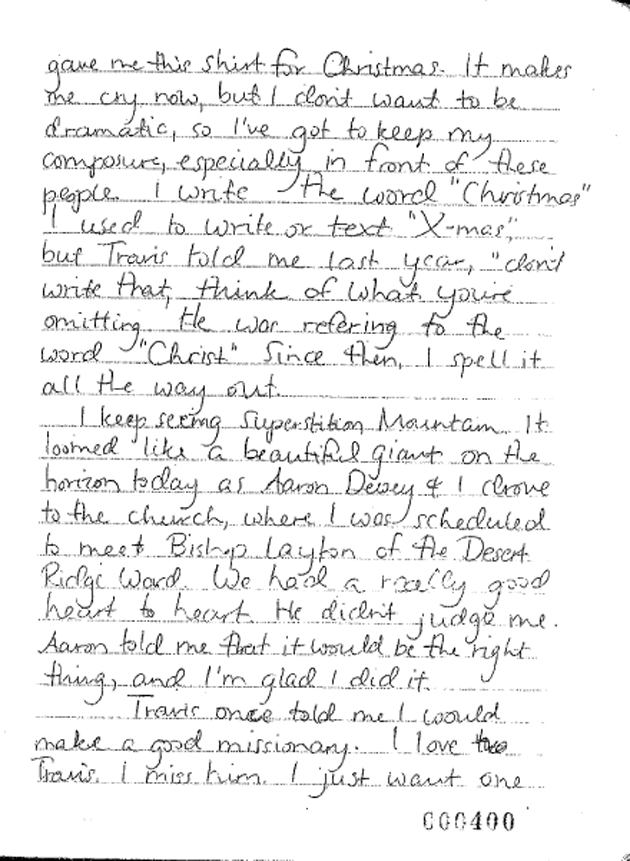 gave me this shirt for Christmas. It makes
me cry now, but I don't want to be
dramatic, so I've got to keep my
composure, especially in front of these
people. I write the word "Christmas"
I used to write or text "X-mas",
but Travis told me last year, "don't
write that, think of what you're
omitting. He was refering to the
word "Christ" Since then, I spell it
all the way out.
I keep seeing Superstition Mountain. It
loomed like a beautiful giant on the
horizon today as Aaron Dewey & I drove
to the church, where I was scheduled
to meet Bishop Layton of the Desert
Ridge Ward. We had a really good
heart to heart. He didn't judge me.
Aaron told me that it would be the right
thing, and I'm glad I did it.
Travis once told me I would
make a good missionary. I love
Travis. I miss him. I just want one
000400